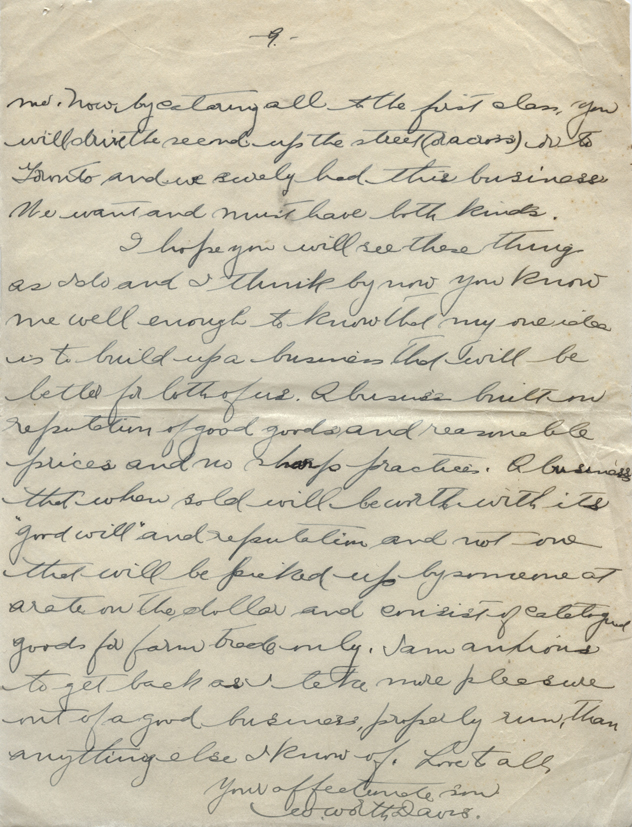 -9.-
me. Now, by catering all to the first class, you
will drive the second up the street (or across) or to
Toronto and we surely had this business
We want and must have both kinds.
I hope you will see these thing
as I do and I think by now you know
me well enough to know that my one idea
is to build up a business that will be
better for both of us. A business built on
reputation of good goods and reasonable
prices and no sharp practices. A business
that when sold will be worth with its
"good will" and reputation and not one
that will be picked up by someone at
a rate on the dollar and consist of catalogue
goods for farm trade only. I am anxious
to get back as I take more pleasure
out of a good business, properly run, than
anything else I know of. Love to all,
Your affectionate son
Worth Davis.